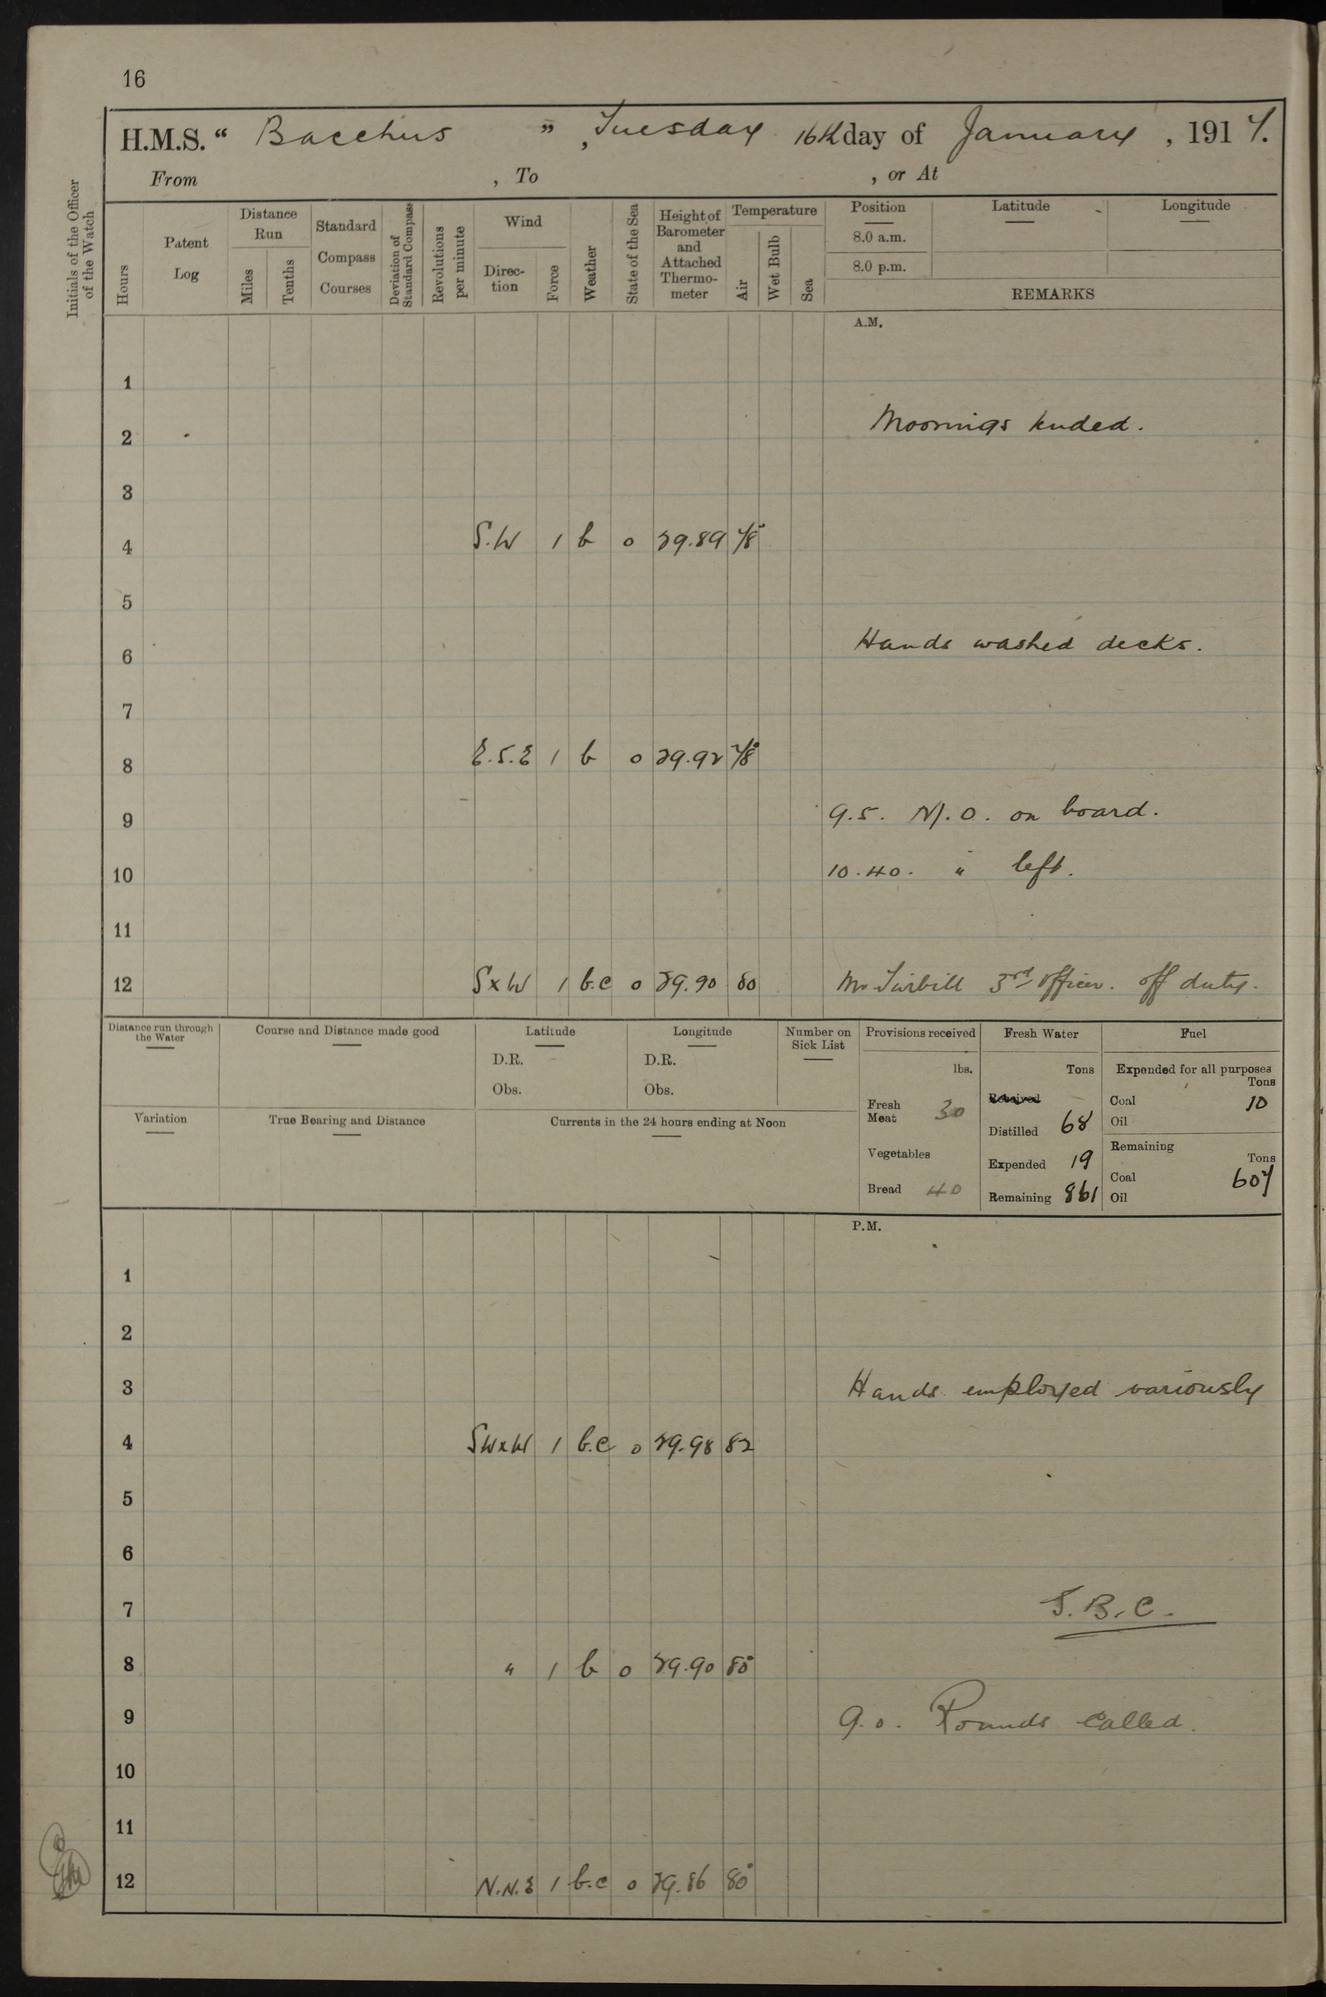 16
H.M.S. “ Bacchus ” , Tuesday 16th day of January , 1917.
From , To , or At
Initials of the Officer of the Watch
Hours
Patent Log
Distance Run
Miles
Tenths
Standard Compass Courses
Deviation of Standard Compass
Revolutions per minute
Wind
Direction
Force
Weather
State of the Sea
Height of Barometer and Attached Thermometer
Temperature
Air
Wet Bulb
Sea
Position Latitude Longitude
8.0 a.m.
8.0 p.m.
REMARKS
A.M.
1
2 Moorings tended.
3
4 S.W 1 b 0 29.89 78°
5
6 Hands washed decks.
7
8 E.S.E 1 b 0 29.92 78°
9 9.5. M.O. on board.
10 10.40. " left.
11
12 SxW 1 b.c 0 29.90 80 Mr Tirbill 3rd officer. off duty.
Distance run through the Water
Course and Distance made good
Latitude
D.R.
Obs.
Longitude
D.R.
Obs.
Number on Sick List
Variation
True Bearing and Distance
Currents in the 24 hours ending at Noon
Provisions received
lbs.
Fresh Meat 30
Vegetables
Bread 40
Fresh Water
Tons
Received
Distilled 68
Expended 19
Remaining 861
Fuel
Expended for all purposes
Tons
Coal 10
Oil
Remaining
Tons
Coal 607
Oil
P.M.
1
2
3 Hands employed variously
4 SWxW 1 b.c 0 29.98 82
5
6
7 S.B.C.
8 " 1 b 0 29.90 80°
9 9.0. Rounds called.
10
11
12 N.N.E 1 b.c 0 29.86 80°